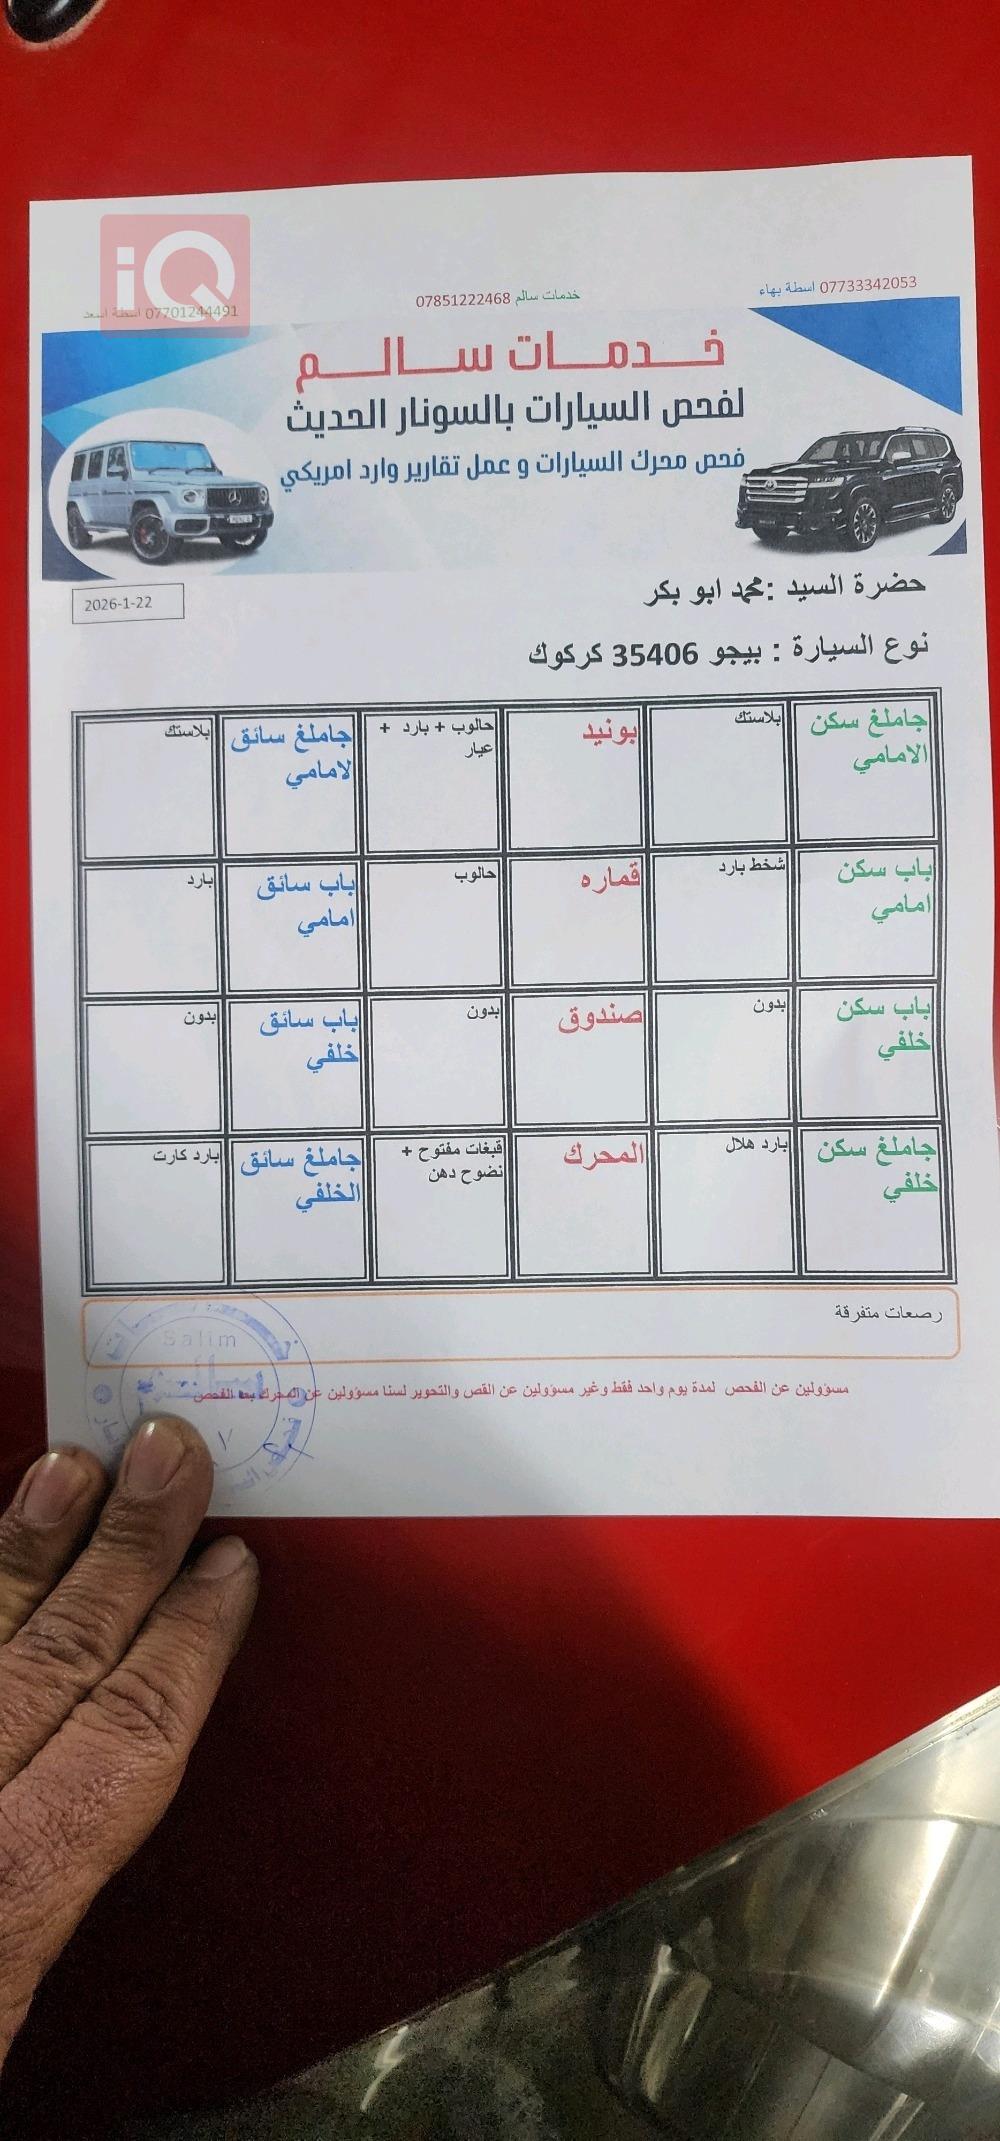 iQ
07733342053 اسطة بهاء
خدمات سالم 07851222468
07701244491 اسطة اسعد
خـدمـات سـالـم
لفحص السيارات بالسونار الحديث
فحص محرك السيارات و عمل تقارير وارد امريكي
حضرة السيد :محمد ابو بكر
2026-1-22
نوع السيارة : بيجو 35406 كركوك
جاملغ سكن الامامي
بلاستك
بونيد
حالوب + بارد + عيار
جاملغ سائق لامامي
بلاستك
باب سكن امامي
شخط بارد
قماره
حالوب
باب سائق امامي
بارد
باب سكن خلفي
بدون
صندوق
بدون
باب سائق خلفي
بدون
جاملغ سكن خلفي
بارد هلال
المحرك
قبغات مفتوح + نضوح دهن
جاملغ سائق الخلفي
بارد كارت
رصعات متفرقة
مسؤولين عن الفحص لمدة يوم واحد فقط وغير مسؤولين عن القص والتحوير لسنا مسؤولين عن المحرك بعد الفحص
Salim